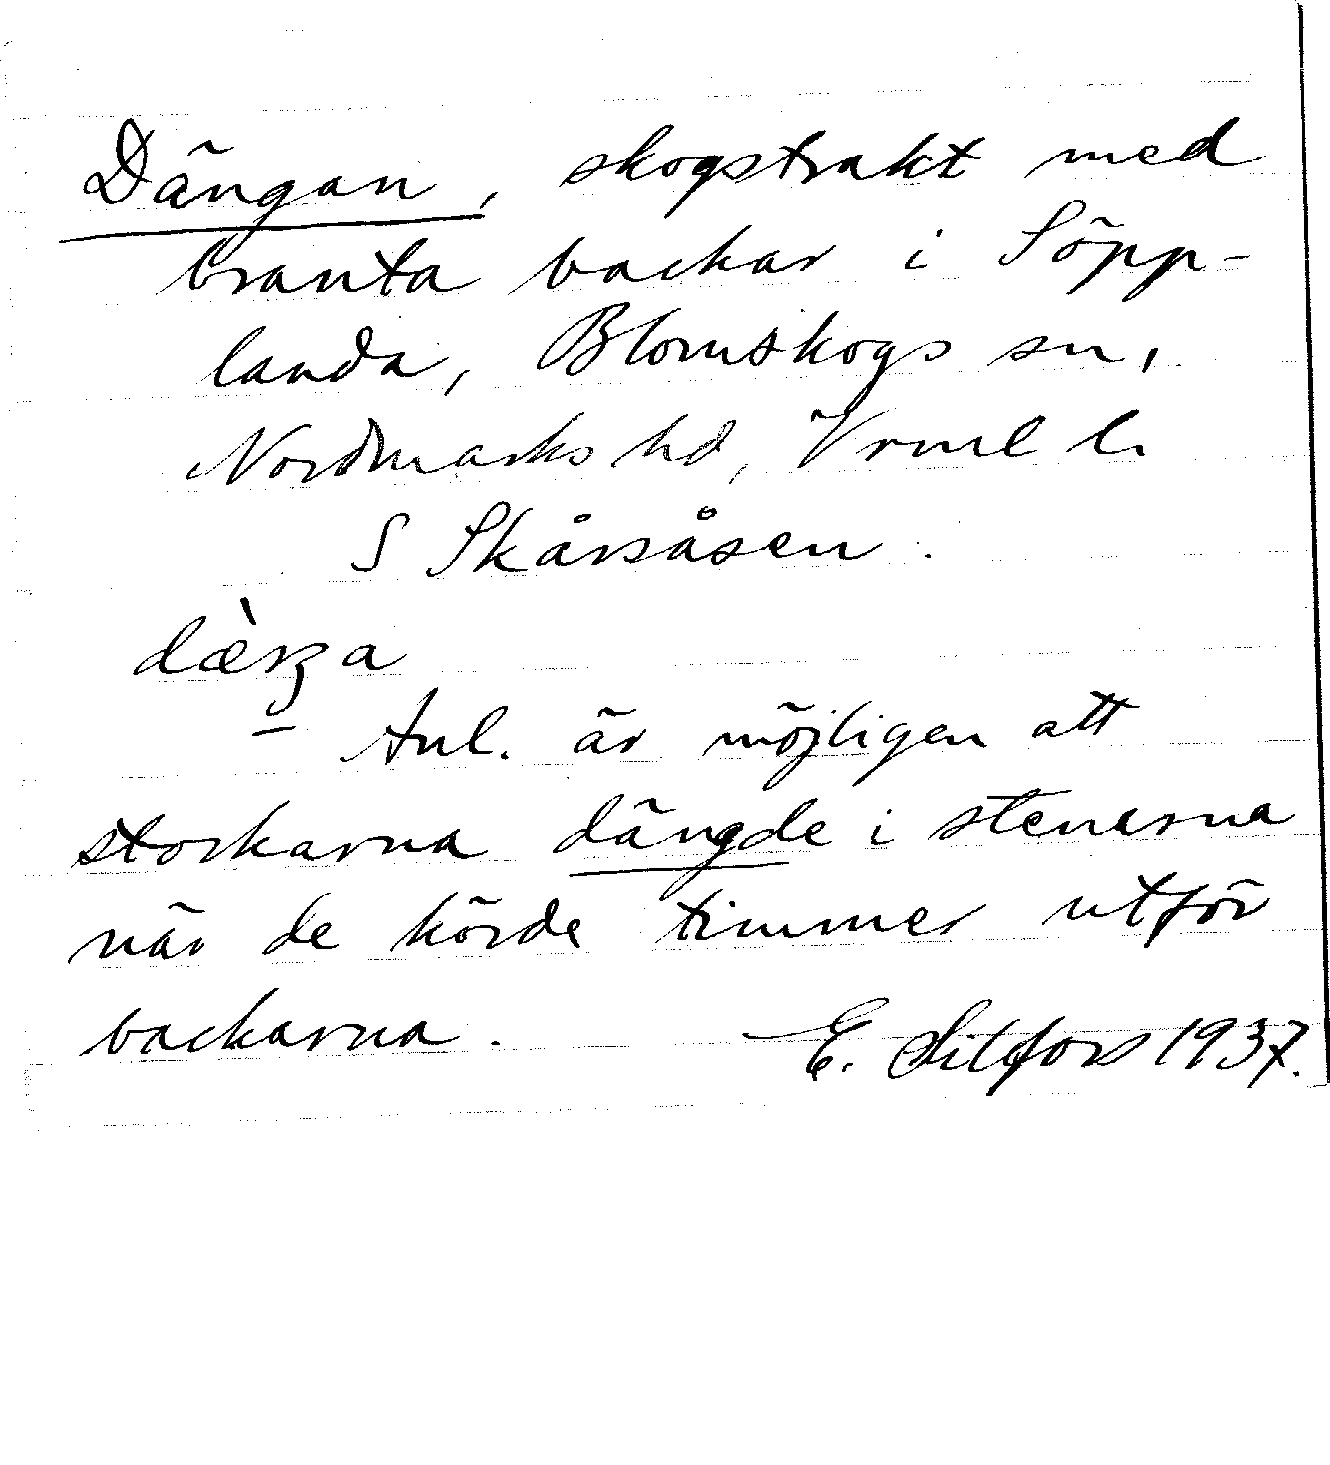 Dängan, skogstrakt med
branta backar i Söpp-
landa, Blomskogs sn,
Nordmarks hd, Vrml l.
S Skårsåsen.
Anl. är möjligen att
stockarna dängde i stenarna
när de körde timmer utför
backarna.
E. Litfors 1937.